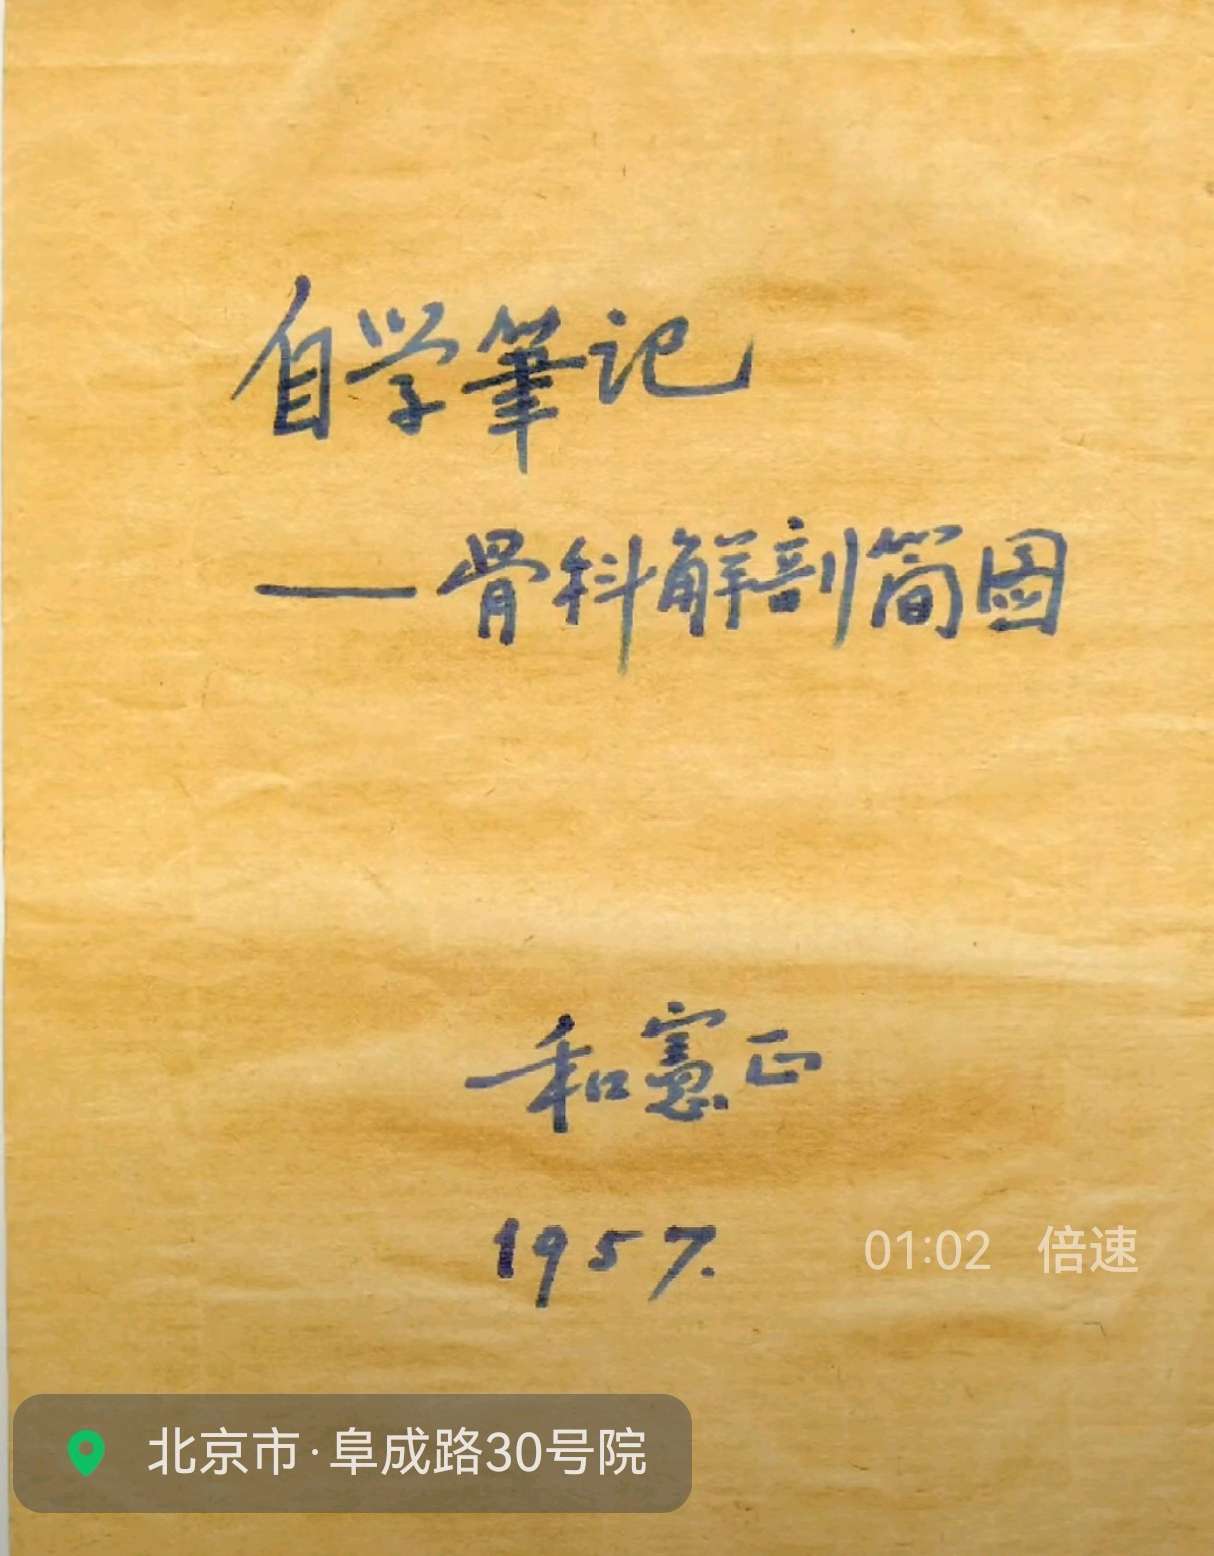 自学筆记
——骨科解剖简图
和憲正
1957.
01:02 倍速
北京市·阜成路30号院